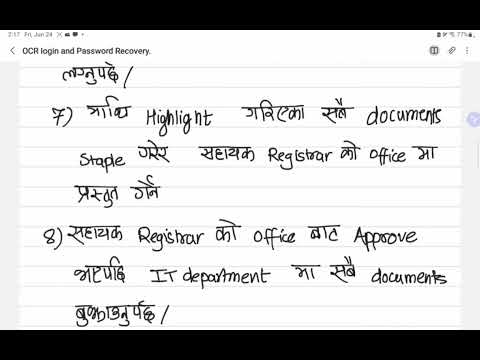 2:17 Fri, Jun 24
77%
OCR login and Password Recovery.
लग्नुपर्छ /
7) माथि Highlight गरिएका सबै documents
Staple गरेर सहायक Registrar को office मा
प्रस्तुत गर्ने
8) सहायक Registrar को office बाट Approve
भएपछि IT department मा सबै documents
बुझाउनुपर्छ /